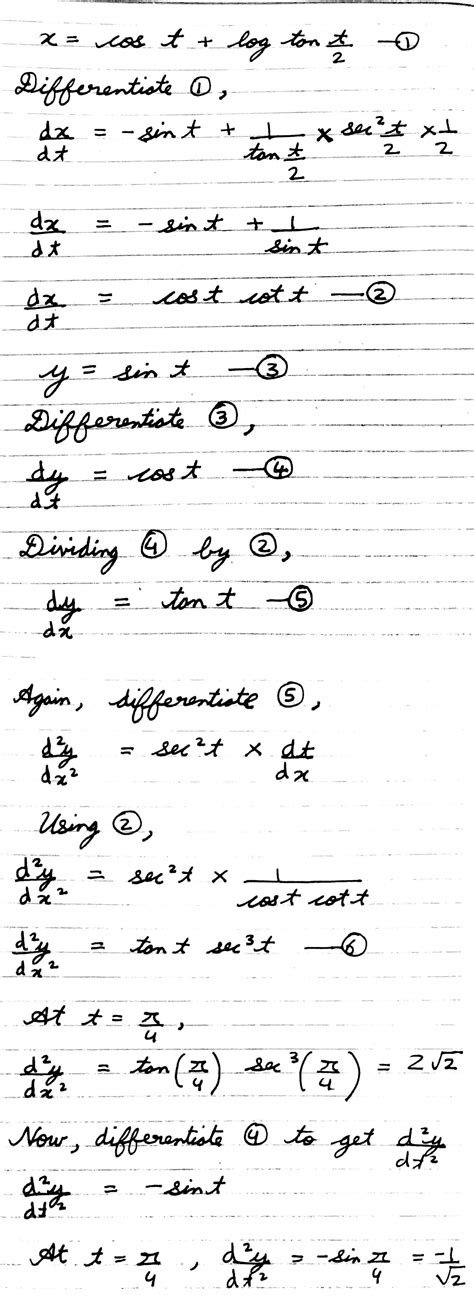 x = cos t + log tan t/2 —①
Differentiate ①,
dx/dt = -sin t + 1/(tan t/2) × sec² t/2 × 1/2
dx/dt = - sin t + 1/sin t
dx/dt = cos t cot t —②
y = sin t —③
Differentiate ③,
dy/dt = cos t —④
Dividing ④ by ②,
dy/dx = tan t —⑤
Again, differentiate ⑤,
d²y/dx² = sec² t × dt/dx
Using ②,
d²y/dx² = sec² t × 1/(cos t cot t)
d²y/dx² = tan t sec³ t —⑥
At t = π/4,
d²y/dx² = tan(π/4) sec³(π/4) = 2√2
Now, differentiate ④ to get d²y/dt²
d²y/dt² = -sin t
At t = π/4, d²y/dt² = -sin π/4 = -1/√2